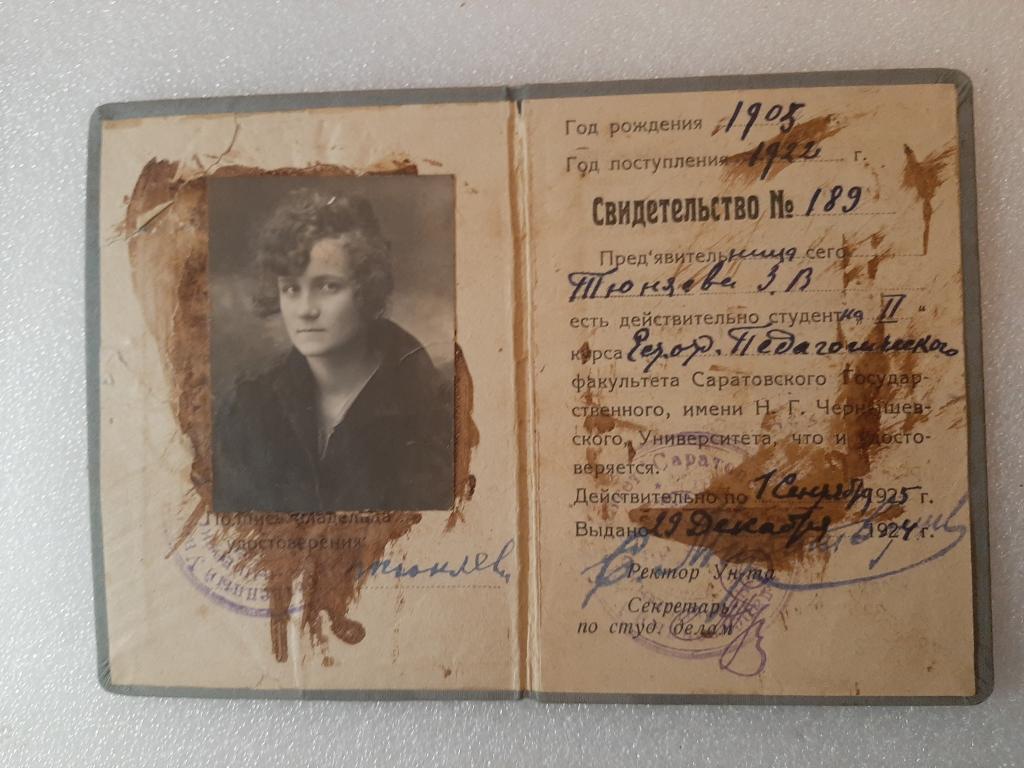 Подпись владельца
удостоверения
Тюняев
Год рождения 1905 г.
Год поступления 1922 г.
Свидетельство № 189
Пред'явительница сего
Тюняева З. В
есть действительно студентка „ II “
курса Педагогического
факультета Саратовского Государ-
ственного, имени Н. Г. Чернышев-
ского, Университета, что и удосто-
веряется.
Действительно по 1 Сентября 1925 г.
Выдано 29 Декабря 1924 г.
Ректор Ун-та
Секретарь
по студ. делам